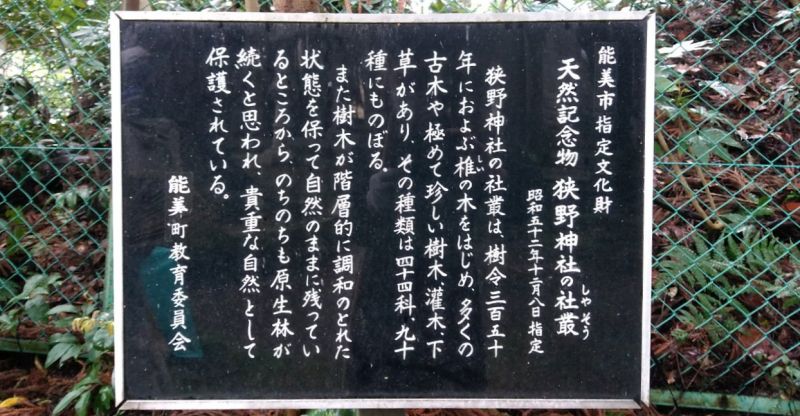 能美市指定文化財
天然記念物 狭野神社の社叢
しやそう
昭和五十二年十二月八日指定
狭野神社の社叢は、樹令三百五十
年におよぶ椎の木をはじめ、多くの
しい
古木や極めて珍しい樹木、灌木、下
草があり、その種類は四十四科、九十
種にものぼる。
また樹木が階層的に調和のとれた
状態を保って自然のままに残ってい
るところから、のちのちも原生林が
続くと思われ、貴重な自然として
保護されている。
能美町教育委員会